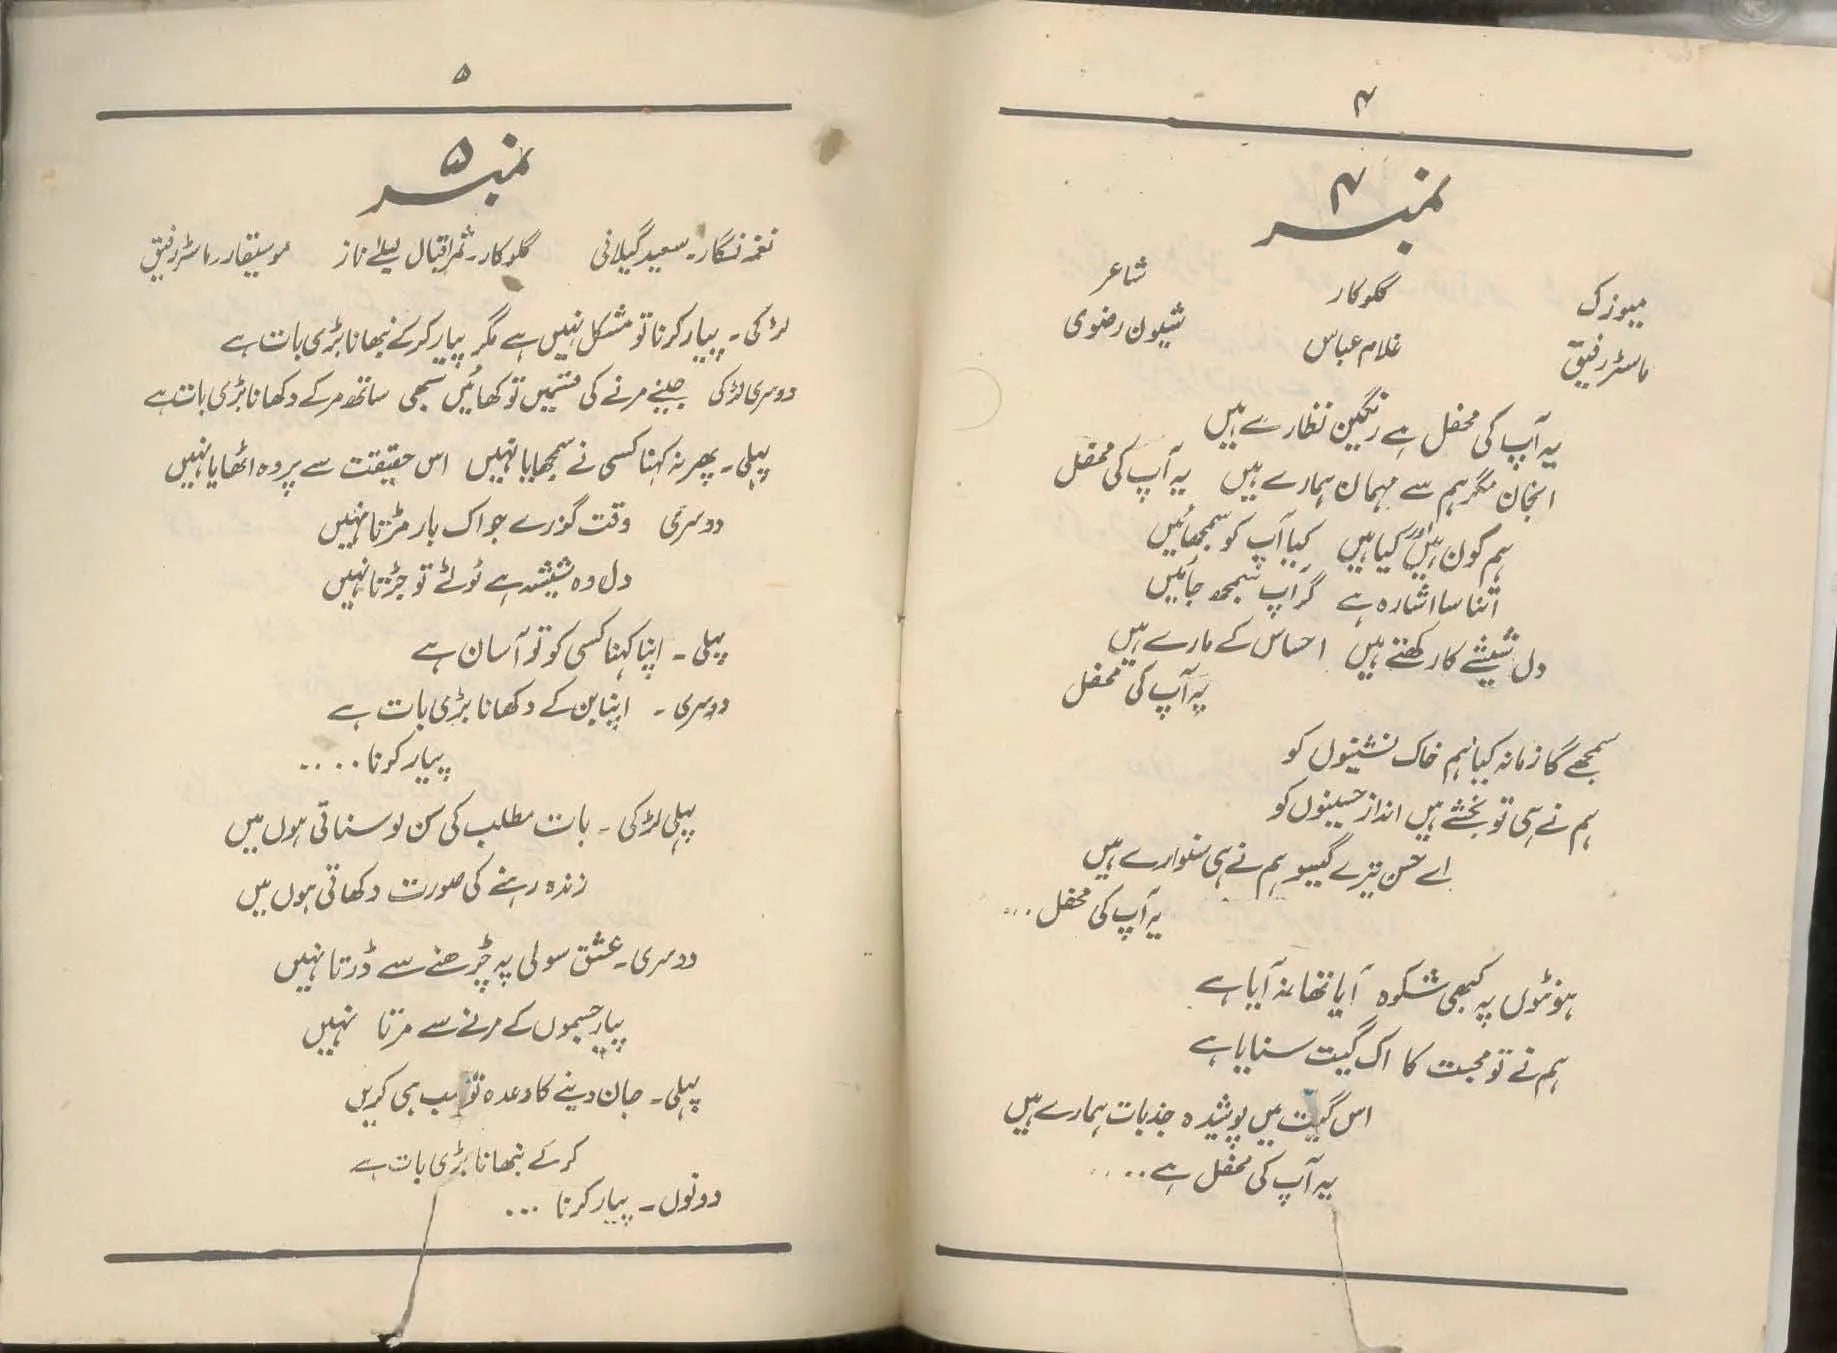 ۴
نمبر ۴
میوزک گلوکار شاعر
ماسٹر رفیق غلام عباس شیون رضوی
یہ آپ کی محفل ہے رنگین نظارے ہیں
انجان مگر ہم سے مہمان ہمارے ہیں یہ آپ کی محفل
ہم کون ہیں اور کیا ہیں کیا آپ کو سمجھائیں
اتنا سا اشارہ ہے گر آپ سمجھ جائیں
دل شیشے کا رکھتے ہیں احساس کے مارے ہیں
یہ آپ کی محفل
سمجھے گا زمانہ کیا ہم خاک نشینوں کو
ہم نے ہی تو بخشے ہیں انداز حسینوں کو
اے حسن تیرے گیسو ہم نے ہی سنوارے ہیں
یہ آپ کی محفل ...
ہونٹوں پہ کبھی شکوہ آیا تھا نہ آیا ہے
ہم نے تو محبت کا اک گیت سنایا ہے
اس گیت میں پوشیدہ جذبات ہمارے ہیں
یہ آپ کی محفل ہے ....
۵
نمبر ۵
نغمہ نگار۔ سعید گیلانی گلوکار۔ ثمر اقبال لیلےٰ ناز موسیقار۔ ماسٹر رفیق
لڑکی۔ پیار کرنا تو مشکل نہیں ہے مگر پیار کر کے نبھانا بڑی بات ہے
دوسری لڑکی جینے مرنے کی قسمیں تو کھائیں سبھی ساتھ مر کے دکھانا بڑی بات ہے
پہلی۔ پھر نہ کہنا کسی نے سمجھایا نہیں اس حقیقت سے پردہ اٹھایا نہیں
دوسری وقت گزرے جو اک بار مڑتا نہیں
دل وہ شیشہ ہے ٹوٹے تو جڑتا نہیں
پہلی۔ اپنا کہنا کسی کو تو آسان ہے
دوسری۔ اپنا بن کے دکھانا بڑی بات ہے
پیار کرنا ....
پہلی لڑکی۔ بات مطلب کی سن لو سناتی ہوں میں
زندہ رہنے کی صورت دکھاتی ہوں میں
دوسری۔ عشق سولی پہ چڑھنے سے ڈرتا نہیں
پیار جسموں کے مرنے سے مرتا نہیں
پہلی۔ جان دینے کا وعدہ تو سب ہی کریں
کر کے نبھانا بڑی بات ہے
دونوں۔ پیار کرنا ...